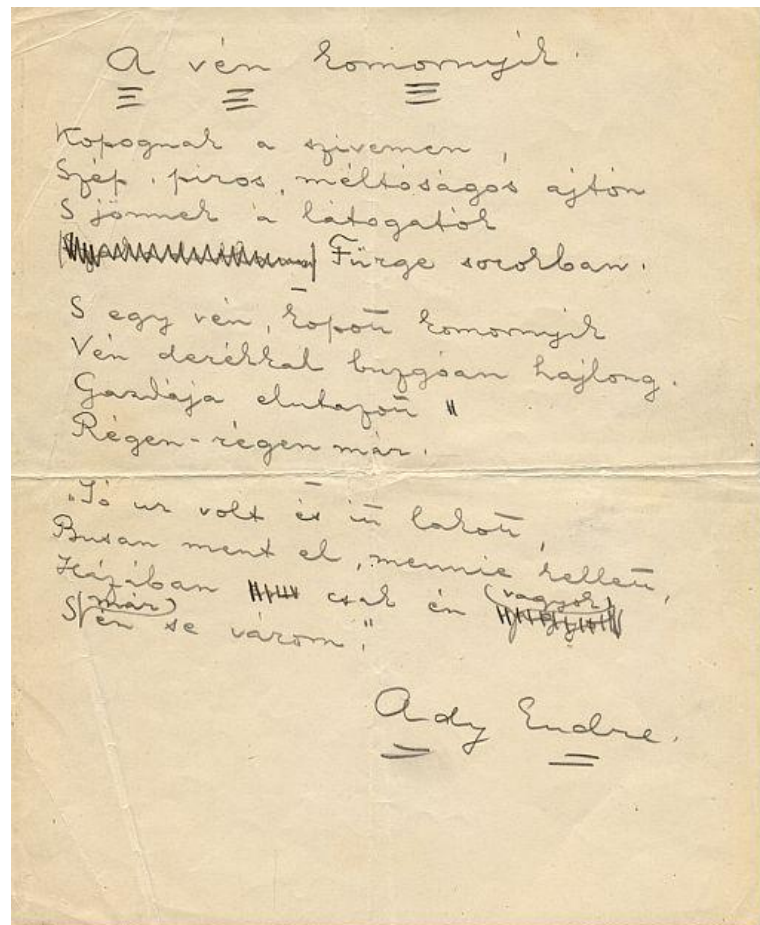 A vén komornyik.
Kopognak a szivemen,
Szép, piros, méltóságos ajtón
S jönnek a látogatók
Fürge sorokban.
S egy vén, kopott komornyik
Vén derékkal buzgóan hajlong.
Gazdája elutazott "
Régen-régen már.
"Jó ur volt és itt lakott,
Busan ment el, mennie kellett,
Házában csak én (vagyok)
S (már) én se várom."
Ady Endre.